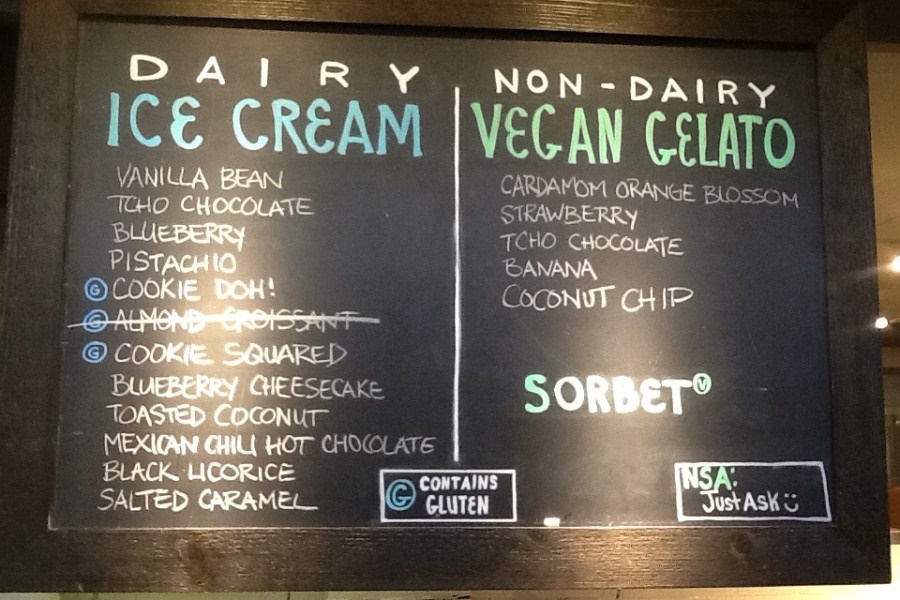 DAIRY
ICE CREAM
VANILLA BEAN
TCHO CHOCOLATE
BLUEBERRY
PISTACHIO
G COOKIE DOH!
G ALMOND CROISSANT
G COOKIE SQUARED
BLUEBERRY CHEESECAKE
TOASTED COCONUT
MEXICAN CHILI HOT CHOCOLATE
BLACK LICORICE
SALTED CARAMEL
G CONTAINS
GLUTEN
NON-DAIRY
VEGAN GELATO
CARDAMOM ORANGE BLOSSOM
STRAWBERRY
TCHO CHOCOLATE
BANANA
COCONUT CHIP
SORBET V
NSA:
Just Ask